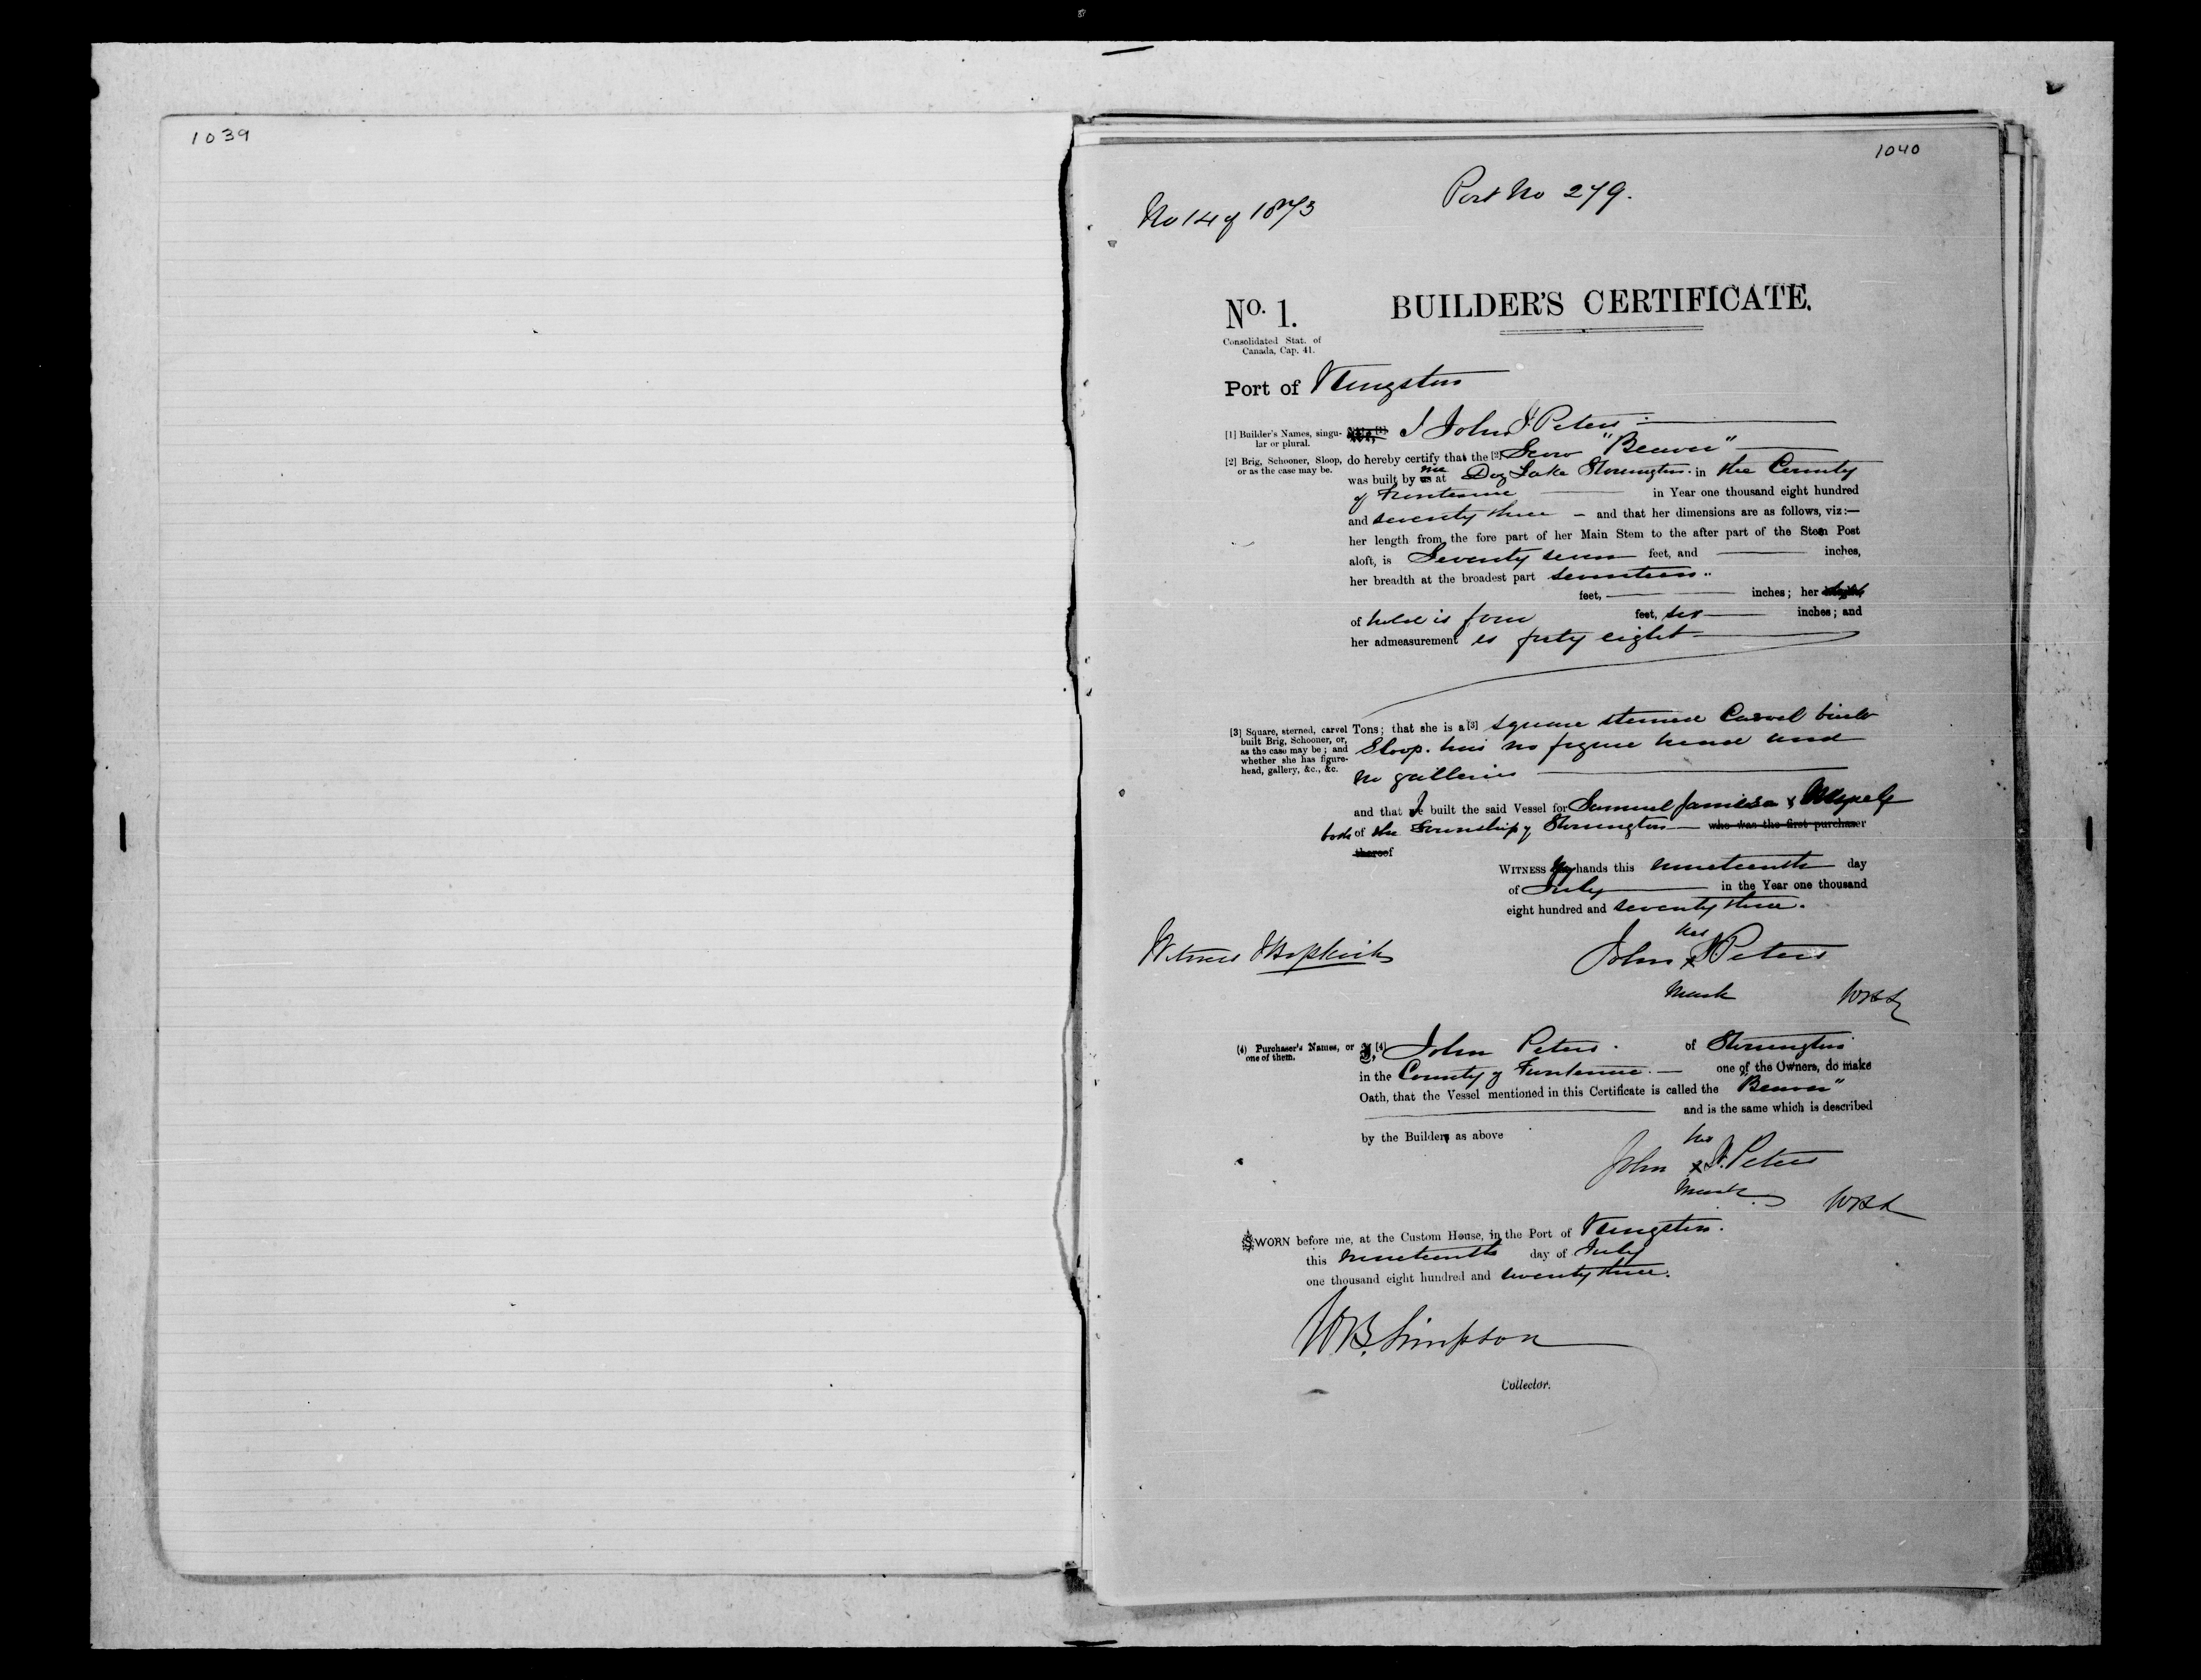 1039
1040
Port No 279.
No 14 of 1873
No. 1.
BUILDER'S CERTIFICATE.
Consolidated Stat. of
Canada, Cap. 41.
Port of Kingston
[1] Builder's Names, singu-
lar or plural.
We,[1] I John J Peters
[2] Brig, Schooner, Sloop,
or as the case may be.
do hereby certify that the [2] Scow "Beaver"
was built by us me at Dog Lake Storrington in the County
of Frontenac in Year one thousand eight hundred
and seventy three - and that her dimensions are as follows, viz:—
her length from the fore part of her Main Stem to the after part of the Stern Post
aloft, is Seventy seven feet, and inches,
her breadth at the broadest part seventeen
feet, inches; her
of hold is four feet, six inches; and
her admeasurement is forty eight
[3] Square, sterned, carvel
built Brig, Schooner, or,
as the case may be; and
whether she has figure-
head, gallery, &c., &c.
Tons; that she is a [3] square sterned Carvel built
Sloop. has no figure head and
no galleries
and that I built the said Vessel for Samuel Jamieson & Myself
both of the Township of Storrington who was the first purchaser
thereof
WITNESS my hands this nineteenth day
of July in the Year one thousand
eight hundred and seventy three.
his
Witness John x J Peters
Mark
(4) Purchaser's Names, or
one of them.
I, [4] John Peters. of Storrington
in the County of Frontenac. — one of the Owners, do make
Oath, that the Vessel mentioned in this Certificate is called the "Beaver"
and is the same which is described
by the Builders as above
his
John x J. Peters
Mark
SWORN before me, at the Custom House, in the Port of Kingston.
this nineteenth day of July
one thousand eight hundred and seventy three.
W.B. Simpson
Collector.